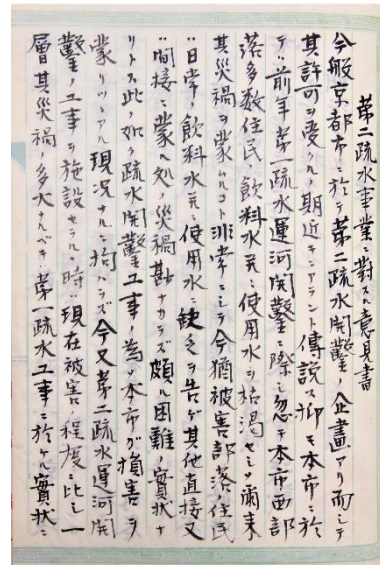 第二疏水事業ニ対スル意見書
今般京都市ニ於テ第二疏水開鑿ノ企畫アリ而シテ
其許可ヲ受クル期近キニアラント傳説ス抑モ本市ニ於
テハ前年第一疏水運河開鑿ニ際シ忽チ本市西部
落多数住民ノ飲料水並ニ使用水ヲ枯渇セシメ爾来
其災禍ヲ蒙ムルコト非常ニシテ今猶被害部落ノ住民
ハ日常ノ飲料水並ニ使用水ニ缺乏ヲ告ゲ其他直接又
ハ間接ニ蒙ル処ノ災禍尠ナカラズ頗ル困難ノ實状ナ
リトス此ノ如ク疏水開鑿工事ノ為メ本市ガ損害ヲ
蒙リツヽアル現况ナルニ拘ハラズ今又第二疏水運河開
鑿ノ工事ヲ施設セラルヽ時ハ現在被害ノ程度ニ比シ一
層其災禍ノ多大ナルベキハ第一疏水工事ニ於ケル實状ニ